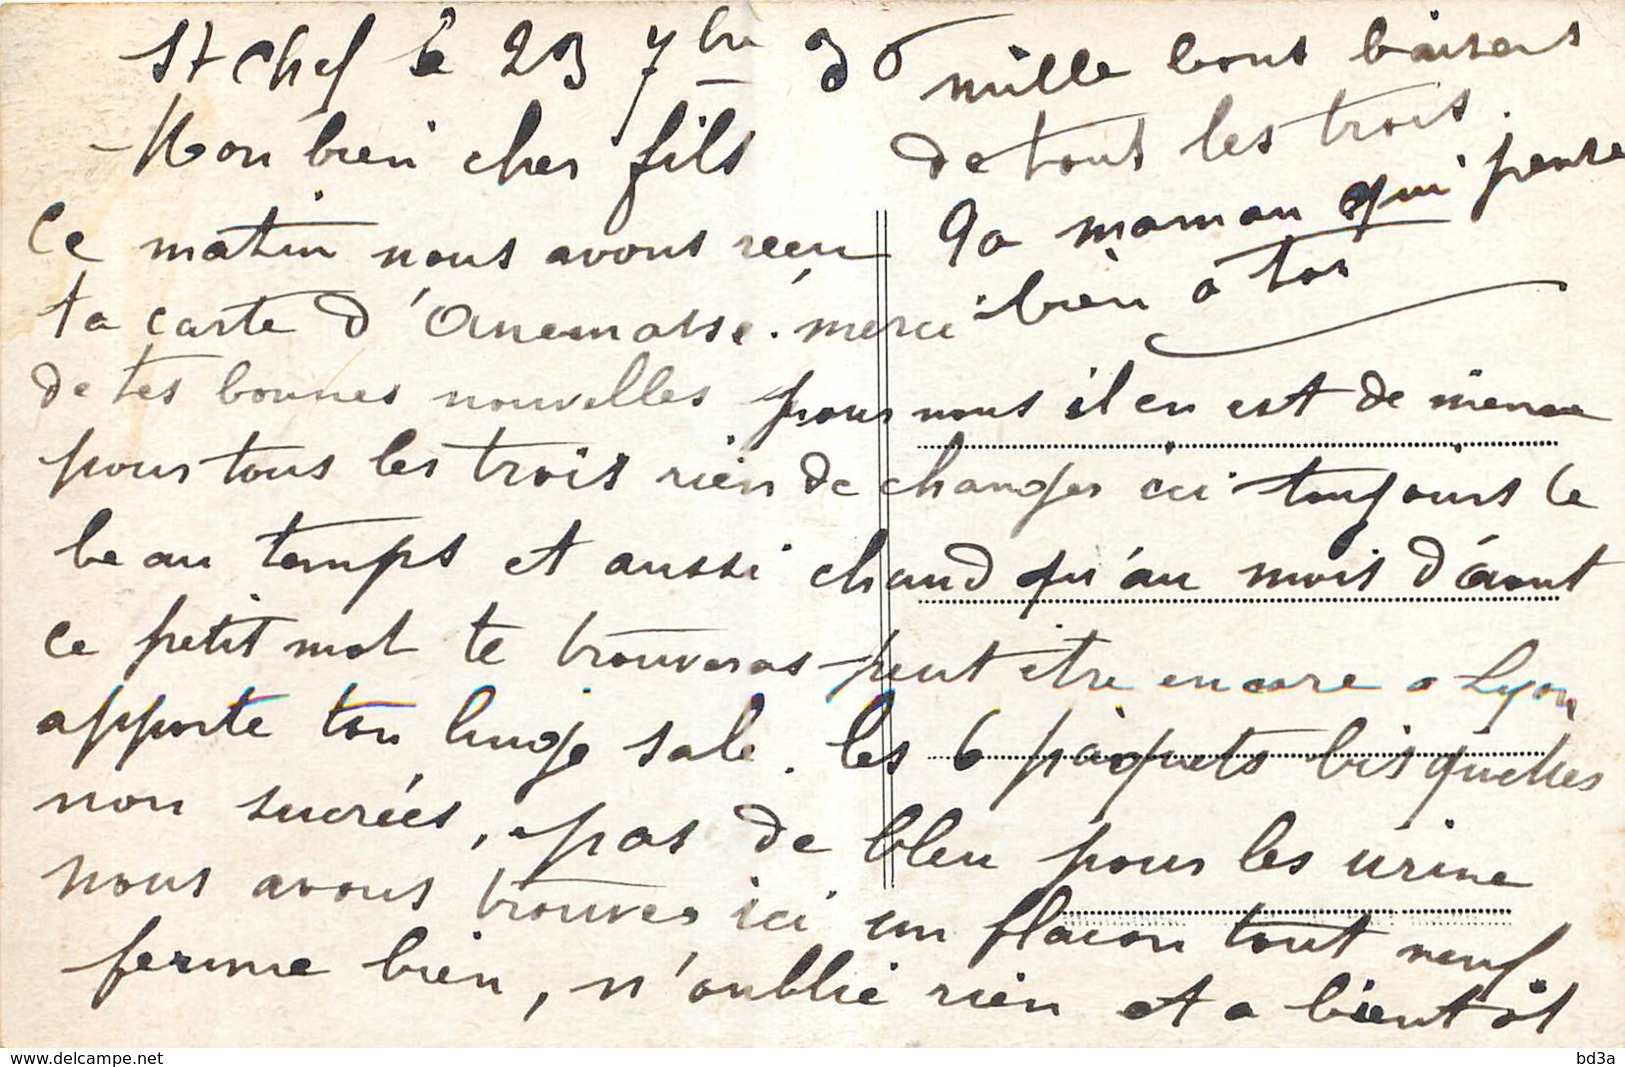 St Chef le 23 7bre 36
Mon bien cher fils
Ce matin nous avons reçu
ta carte d'Anemasse. merci
de tes bonnes nouvelles pour nous il en est de meme
pour tous les trois rien de changer ici toujours le
beau temps et aussi chaud qu'au mois d'aout
ce petit mot te trouveras peut etre encore a Lyon
apporte ton linge sale. les 6 paquets bisquettes
non sucrées, pas de bleu pour les urine
nous avons trouver ici un flacon tout neuf.
ferme bien, n'oublie rien et a bientôt
mille bons baisers
de tous les trois.
Ta maman qui pense
bien à toi
bd3a
www.delcampe.net